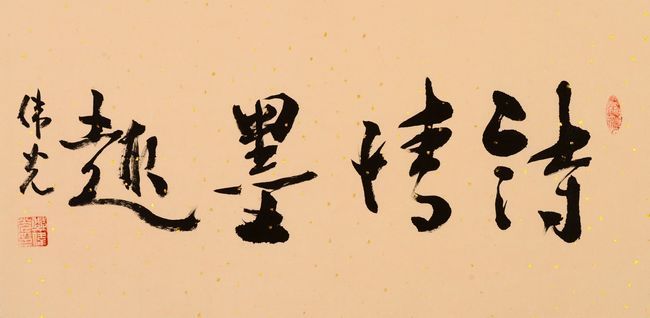 詩情墨趣
伟光